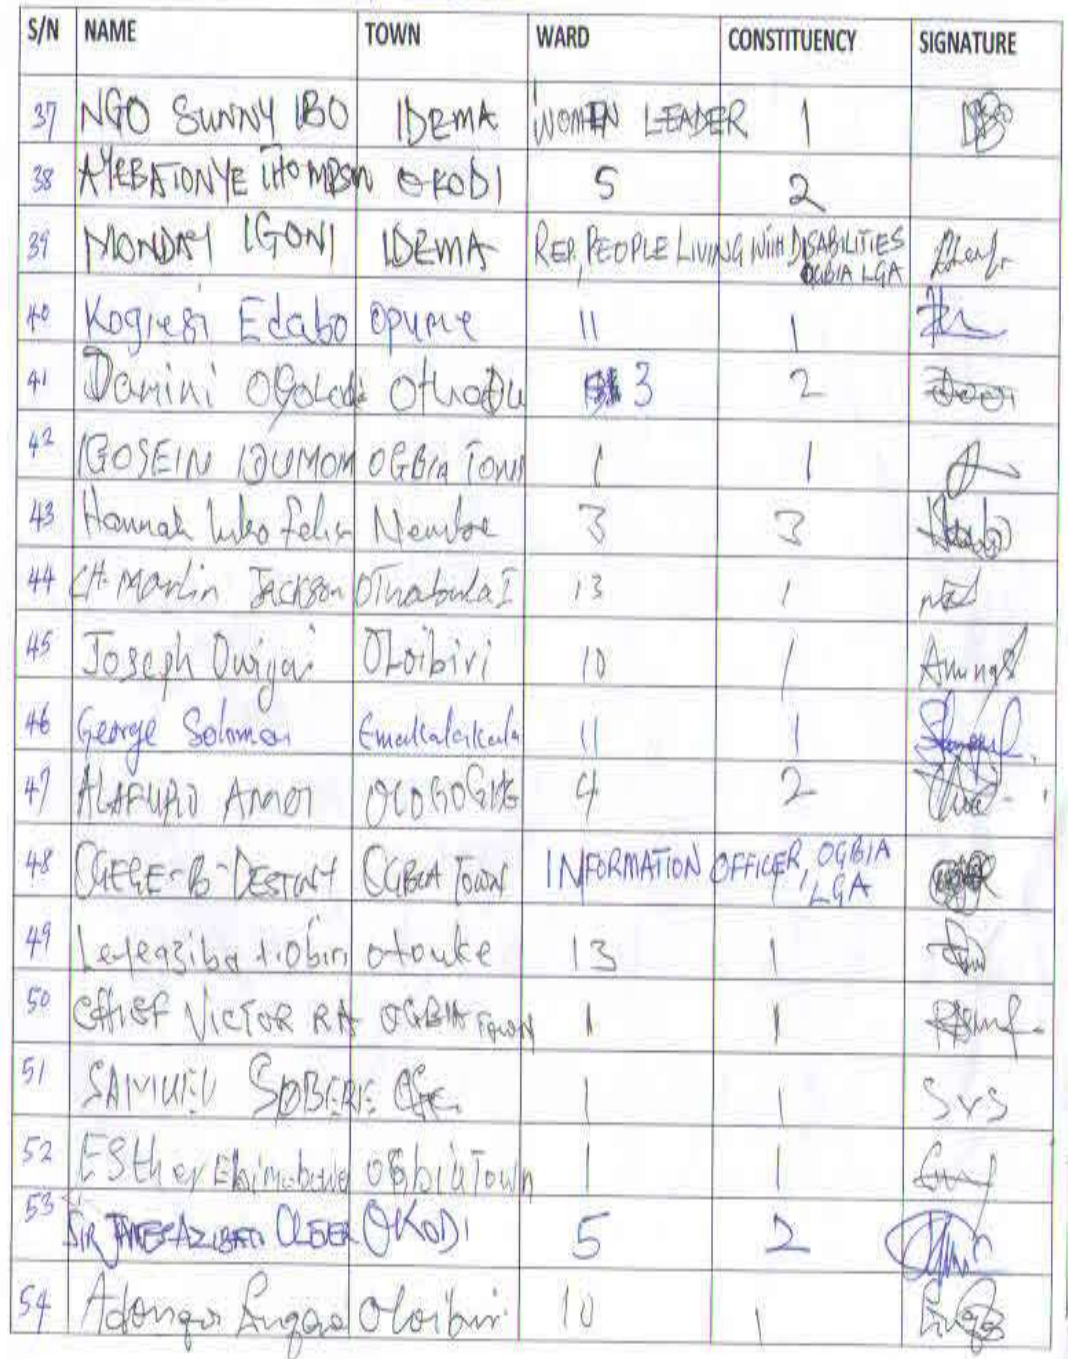 S/N NAME TOWN WARD CONSTITUENCY SIGNATURE
37 NGO SUNNY IBO IDEMA WOMEN LEADER 1
38 AYEBATONYE THOMPSON OKODI 5 2
39 MONDAY IGONI IDEMA REP, PEOPLE LIVING WITH DISABILITIES
OGBIA LGA
40 Kogiesi Edabo Opume 11 1
41 Damini Otuogu 3 2
42 IGOSEIN OGBIA TOWN 1 1
43 Hannah Felix 3 3
44 CH. Martin Jackson Otuabula I 13 1
45 Joseph Oloibiri 10 1
46 George Solomon Emakalakala 11 1
47 ALAFURO 4 2
48 OGEGE-B-DESTINY OGBIA TOWN INFORMATION OFFICER, OGBIA
LGA
49 otouke 13 1
50 CHIEF VICTOR OGBIA TOWN 1 1
51 SAMUEL 1 1 SVS
52 ESther Ogbia Town 1 1
53 SIR OKODI 5 2
54 Oloibiri 10 1